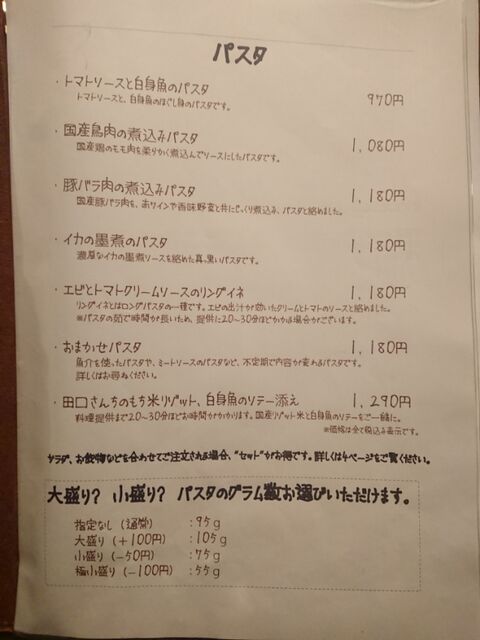 パスタ
・トマトソースと白身魚のパスタ 970円
トマトソースと、白身魚のほぐし身のパスタです。
・国産鳥肉の煮込みパスタ 1,080円
国産鶏のもも肉を柔らかく煮込んでソースにしたパスタです。
・豚バラ肉の煮込みパスタ 1,180円
国産豚バラ肉を、赤ワインや香味野菜と共にじっくり煮込み、パスタと絡めました。
・イカの墨煮のパスタ 1,180円
濃厚なイカの墨煮ソースを絡めた真っ黒いパスタです。
・エビとトマトクリームソースのリングイネ 1,180円
リングイネとはロングパスタの一種です。エビの出汁が効いたクリームとトマトのソースと絡めました。
※パスタの茹で時間が長いため、提供に20~30分ほどかかる場合がございます。
・おまかせパスタ 1,180円
魚介を使ったパスタや、ミートソースのパスタなど、不定期で内容が変わるパスタです。
詳しくはお尋ねください。
・田口さんちのもち米リゾット、白身魚のソテー添え 1,290円
料理提供まで20~30分ほどお時間がかかります。国産リゾット米と白身魚のソテーをご一緒に。
※価格は全て税込み表示です。
サラダ、お飲物などを合わせてご注文される場合、"セット"がお得です。詳しくは4ページをご覧ください。
大盛り? 小盛り? パスタのグラム数お選びいただけます。
指定なし(通常) :95g
大盛り(+100円) :105g
小盛り(-50円) :75g
極小盛り(-100円) :55g